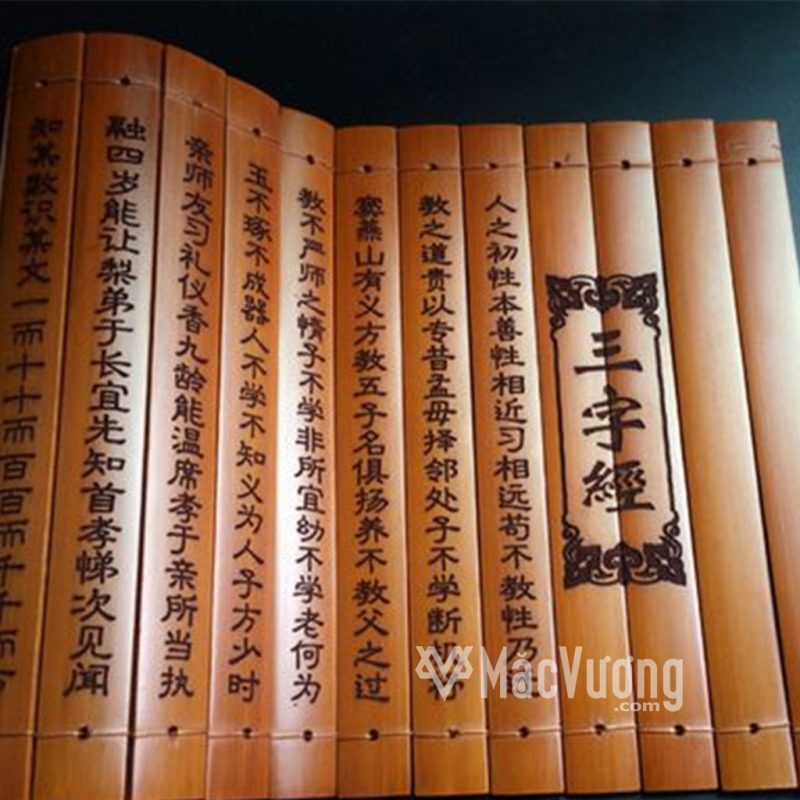 三字經
人之初性本善性相近习相远苟不教性乃
教之道贵以专昔孟母择邻处子不学断机杼
窦燕山有义方教五子名俱扬养不教父之过
教不严师之惰子不学非所宜幼不学老何为
玉不琢不成器人不学不知义为人子方少时
亲师友习礼仪香九龄能温席孝于亲所当执
融四岁能让梨弟于长宜先知首孝悌次见闻
知某数识某文一而十十而百百而千千而万
MặcVương
.com